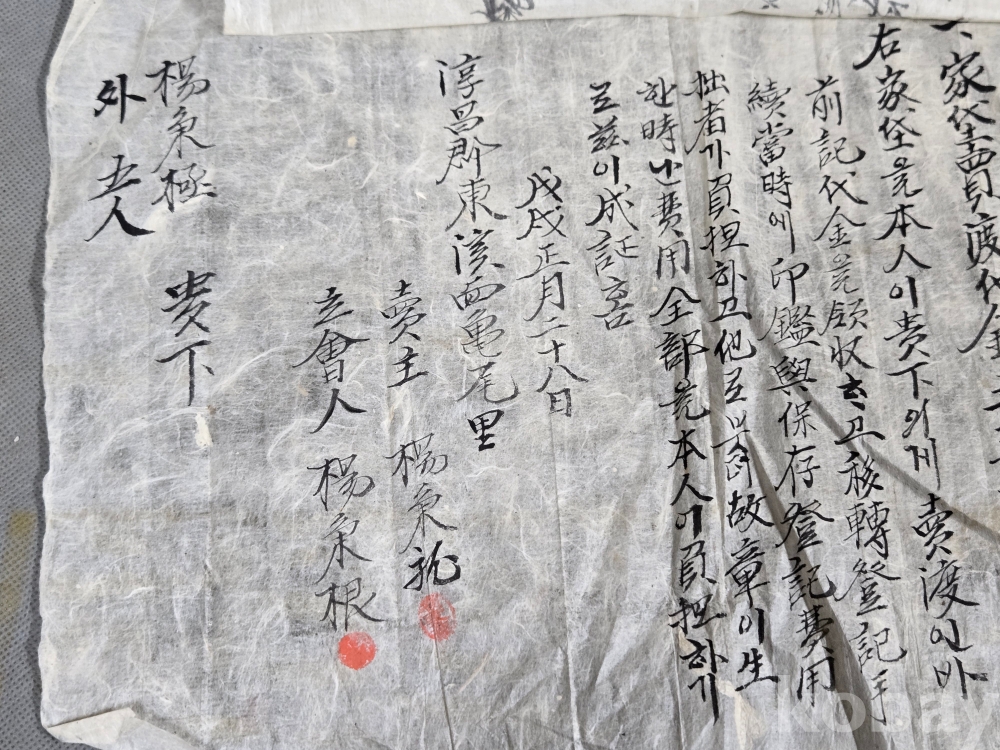 家垈賣渡代金
右家垈을本人이貴下의게賣渡인바
前記代金을領收하고移轉登記手
續當時에印鑑與保存登記費用
拙者가負担하고他로부터故章이生
한時는費用全部을本人이負担하기
로玆이成証홈
戊戌正月二十八日
淳昌郡東溪面亀尾里
賣主 楊秉
立會人 楊秉根
楊秉極
外 五人 貴下
kobay